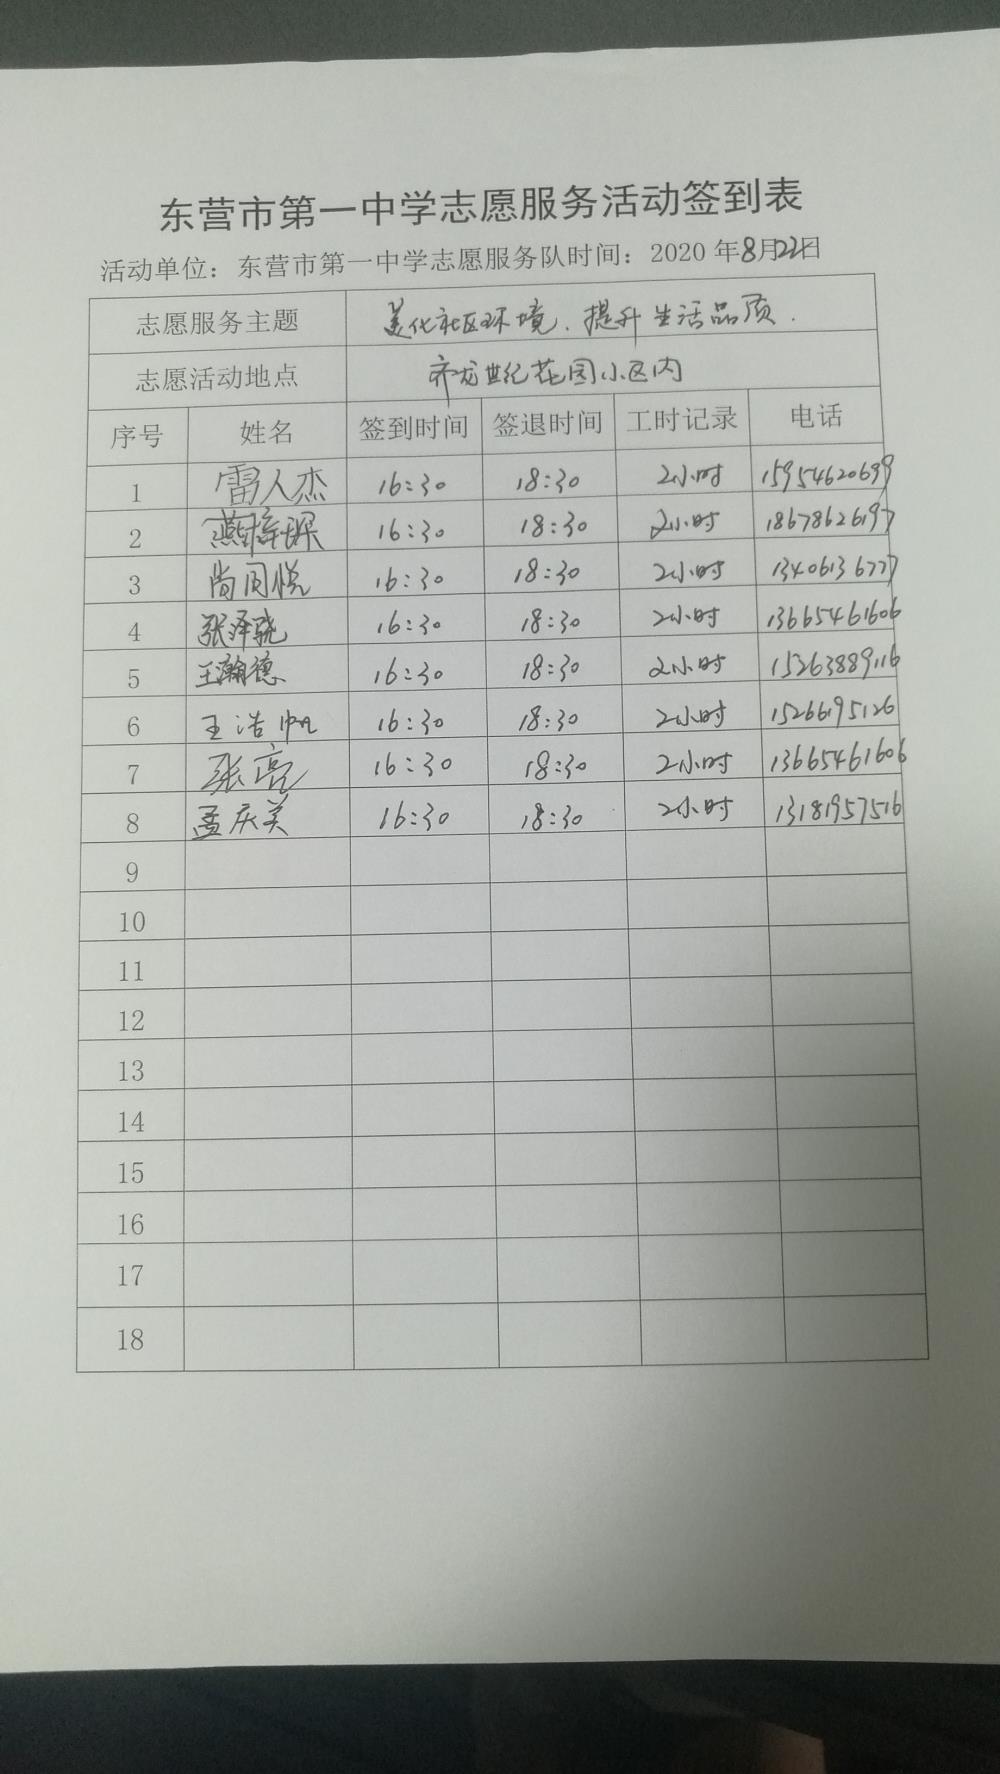 东营市第一中学志愿服务活动签到表
活动单位：东营市第一中学志愿服务队时间：2020 年8月22日
志愿服务主题 美化社区环境、提升生活品质.
志愿活动地点 齐龙世纪花园小区内
序号 姓名 签到时间 签退时间 工时记录 电话
1 雷人杰 16:30 18:30 2小时 15954620699
2 燕梓琛 16:30 18:30 2小时 18678626197
3 尚同悦 16:30 18:30 2小时 13406136777
4 张泽骁 16:30 18:30 2小时 13665461606
5 王瀚德 16:30 18:30 2小时 15263889116
6 王浩帆 16:30 18:30 2小时 15266195126
7 张亮 16:30 18:30 2小时 13665461606
8 孟庆美 16:30 18:30 2小时 13181957516
9
10
11
12
13
14
15
16
17
18